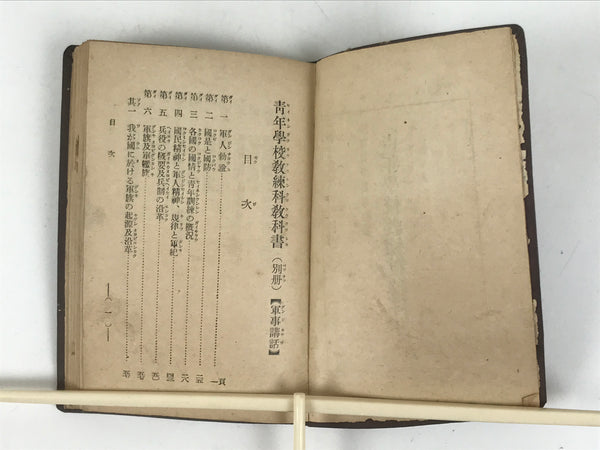 青年學校教練科教科書（別册）【軍事講話】
目次
第一 軍人勅諭……一頁
第二 國是と國防
第三 各國の國情と青年訓練の概況
第四 國民精神と軍人精神、規律と軍紀
第五 兵役の概要及兵制の沿革
第六 軍旗及軍艦旗
其一 我が國に於ける軍旗の起源及沿革
目次 ―（一）―